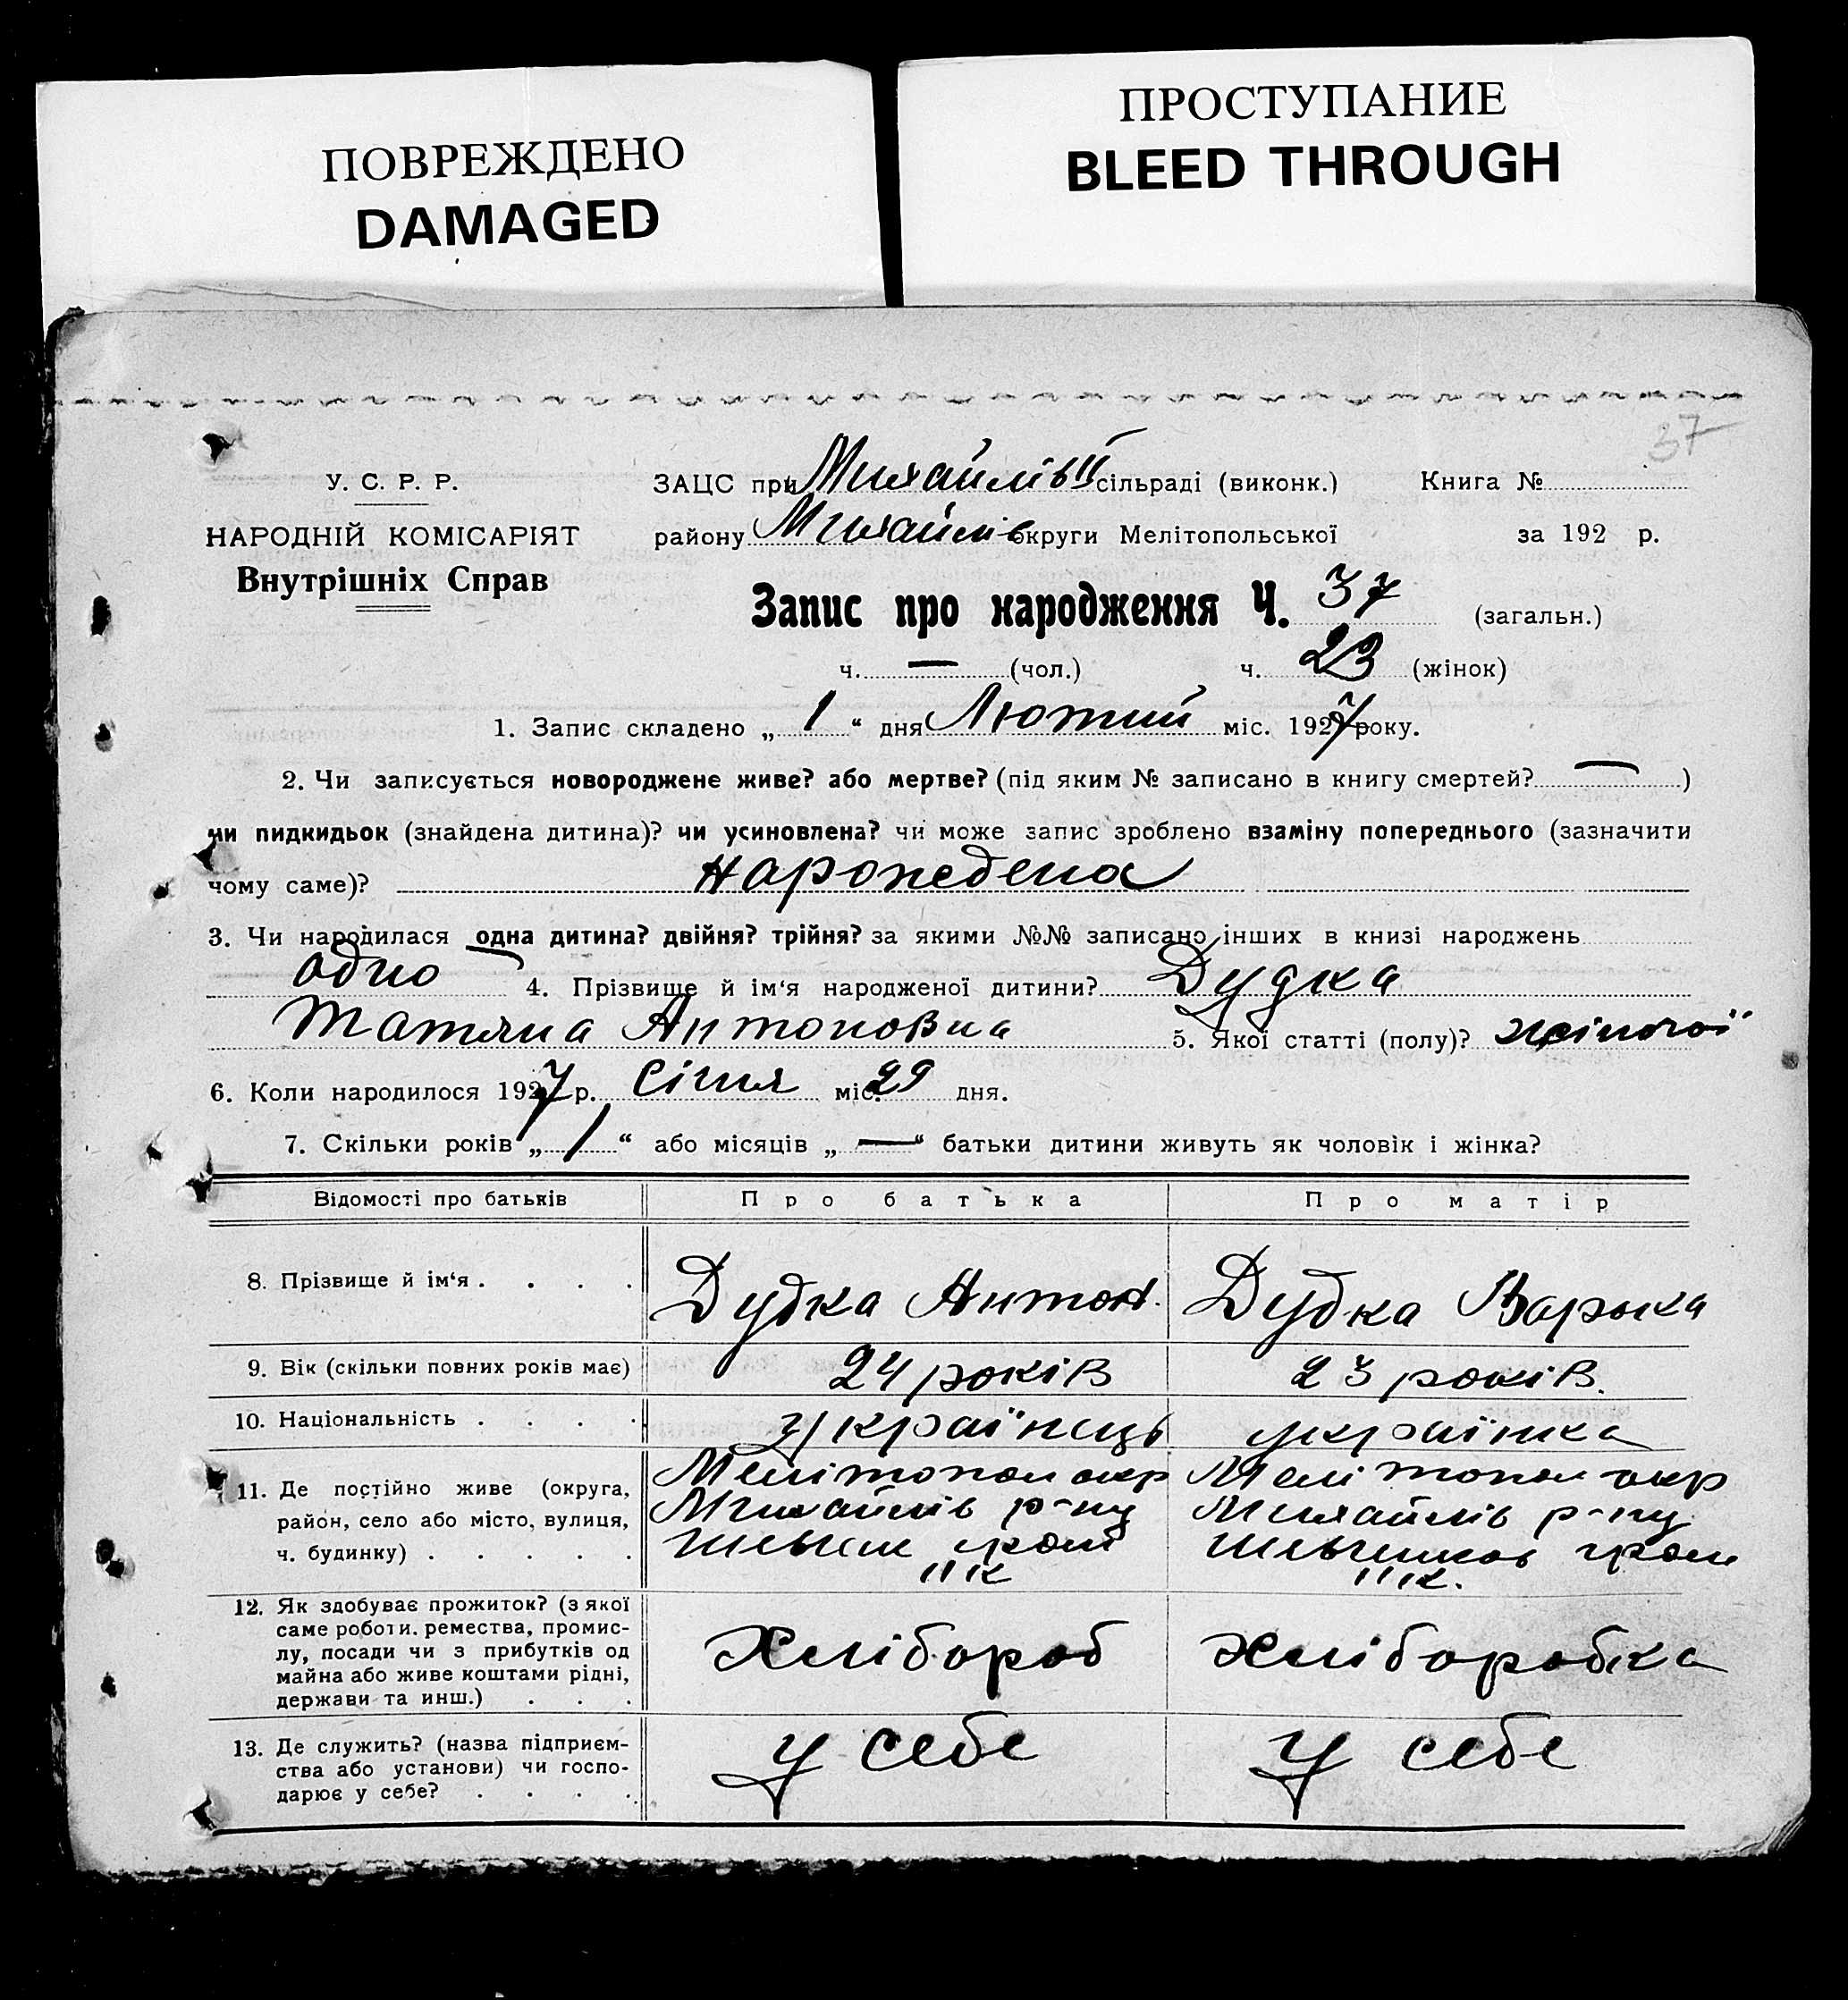 ПОВРЕЖДЕНО
DAMAGED
ПРОСТУПАНИЕ
BLEED THROUGH
37
У. С. Р. Р.
ЗАЦС при Михайлів II сільраді (виконк.) Книга №
НАРОДНІЙ КОМІСАРІЯТ
району Михайлів округи Мелітопольської за 192 р.
Внутрішніх Справ
Запис про народження Ч. 37 (загальн.)
ч. — (чол.) ч. 23 (жінок)
1. Запис складено „ 1 “ дня Лютий міс. 1927 року.
2. Чи записується новороджене живе? або мертве? (під яким № записано в книгу смертей? — )
чи пидкидьок (знайдена дитина)? чи усиновлена? чи може запис зроблено взаміну попереднього (зазначити
чому саме)? нарождена
3. Чи народилася одна дитина? двійня? трійня? за якими №№ записано інших в книзі народжень
одно 4. Прізвище й ім‘я народженої дитини? Дудка
Татяна Антоновна 5. Якої статті (полу)? жіночої
6. Коли народилося 1927 р. Січня міс. 29 дня.
7. Скільки років „ 1 “ або місяців „ — “ батьки дитини живуть як чоловік і жінка?
Відомості про батьків Про батька Про матір
8. Прізвище й ім‘я . . . . Дудка Антон. Дудка Варька
9. Вік (скільки повних років має) 24 років 23 років.
10. Національність . . . . українець українка
11. Де постійно живе (округа, Мелітопол окр Мелітопол окр
район, село або місто, вулиця, Михайлів р-ну Михайлів р-ну
ч. будинку) . . . . . гром
12. Як здобуває прожиток? (з якої
саме роботи, ремества, промис-
лу, посади чи з прибутків од Хлібороб Хліборобка
майна або живе коштами рідні,
держави та инш.) . . .
13. Де служить? (назва підприєм- у себе у себе
ства або установи) чи госпо-
дарює у себе? . . . .